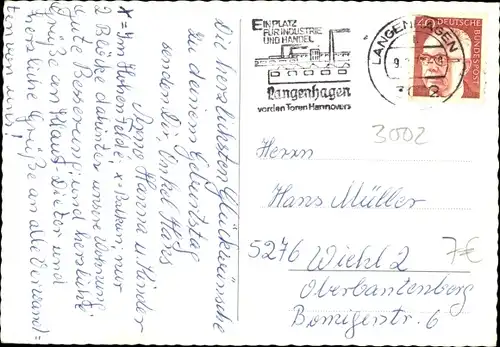 Die herzlichsten Glückwünsche
zu deinem Geburtstag
senden Dir Onkel Hans
Anne Hanna u. Kinder
x = Im Hohenfelde, x = Balkon, nur
2 Blöcke dahinter unsere Wohnung
Gute Besserung und herzliche
Grüße an Klaus-Dieter und
herzliche Grüße an alle Verwand=
ten von uns!
EIN PLATZ
FÜR INDUSTRIE
UND HANDEL
Langenhagen
vor den Toren Hannovers
LANGENHAGEN
40
DEUTSCHE
BUNDESPOST
3002
Herrn
Hans Müller
5276 Wiehl 2
7€
Oberbantenberg
Bomigerstr. 6